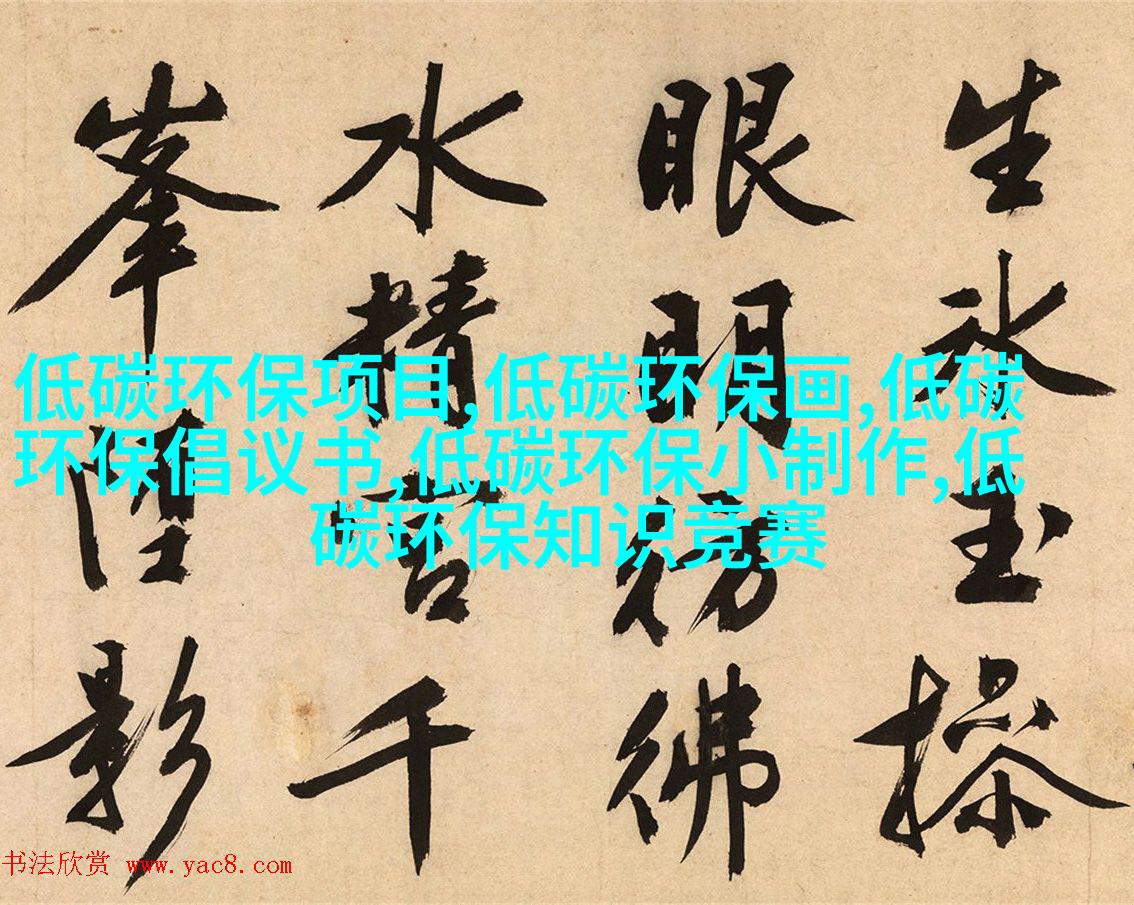 生氷玉操
眼明彷彿
水精宮千
峯墮影
低碳环保项目,低碳环保画,低碳
环保倡议书,低碳环保小制作,低
碳环保知识竞赛
书法欣赏 www.yac8.com